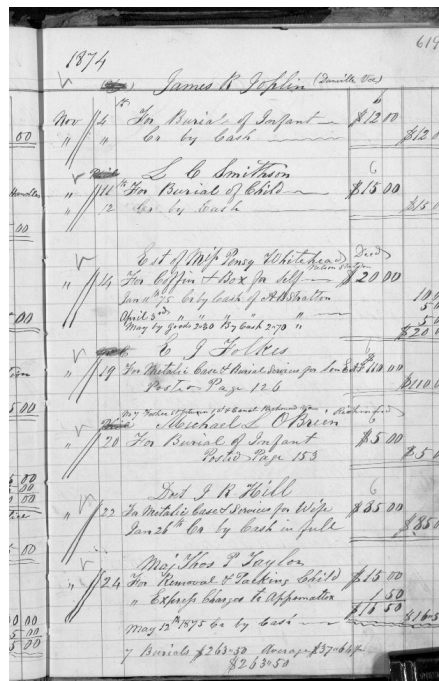 619
1874
James R Joplin (Danville Va)
Nov 4th For Burial of Infant $12 00
" " Cr by Cash $12 0
L C Smithson
" 11th For Burial of Child $15 00
" 12 Cr by Cash $15 0
Est of Miss Pensy Whitehead Decd
" 14 For Coffin & Box for self $20 00
Jan 11th 75 Cr by Cash of A B Stratton 10 0
April 3rd " " " " " 5 0
May by Goods 2.30 By Cash 2.70 " 5 0
$20 0
E J Folkes
" 19 For Metalic Case & Burial Services for Son $110.00
Posted Page 126 $110 0
Michael L O'Brien
" 20 For Burial of Infant $5 00
Posted Page 153 $5 0
Dr J R Hill
" 22 For Metalic Case & Services for Wife $85 00
Jan 26th Cr by Cash in full $85 0
Maj Thos P Taylor
" 24 For Removal & Packing Child $15 00
" Express Charges to Appomattox 1 50
$16 50
May 12th 1875 Cr by Cash $16.5
7 Burials $263.50 Average $37.64
$263.50